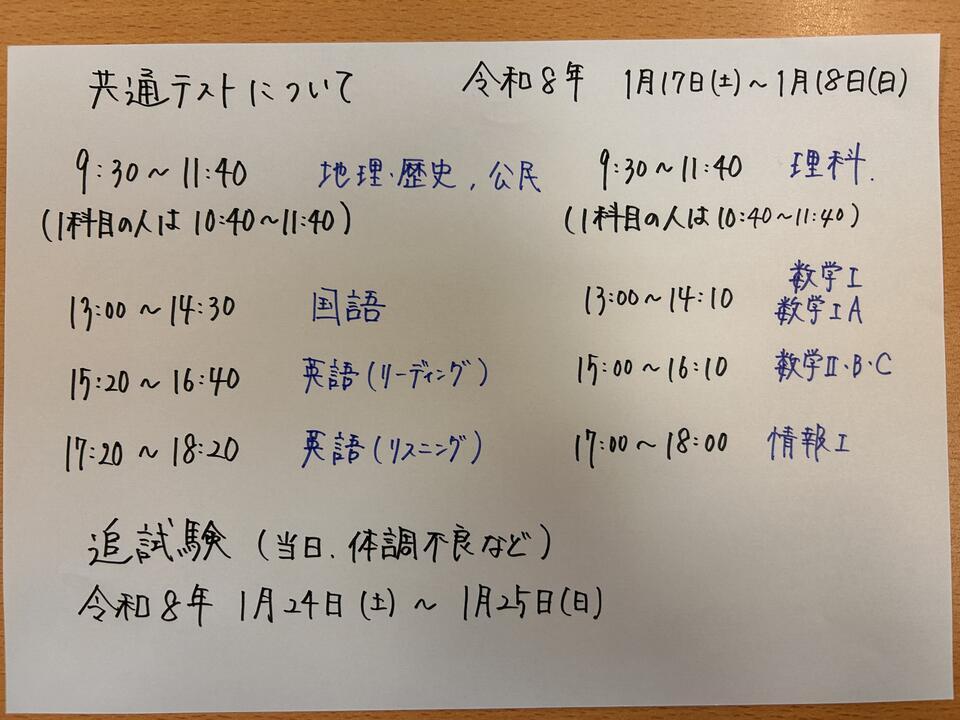 共通テストについて 令和8年 1月17日(土)~1月18日(日)
9:30~11:40 地理・歴史，公民
(1科目の人は 10:40~11:40)
13:00~14:30 国語
15:20~16:40 英語(リーディング)
17:20~18:20 英語(リスニング)
9:30~11:40 理科.
(1科目の人は10:40~11:40)
13:00~14:10 数学I
数学IA
15:00~16:10 数学II・B・C
17:00~18:00 情報I
追試験 (当日、体調不良など)
令和8年 1月24日(土)~ 1月25日(日)